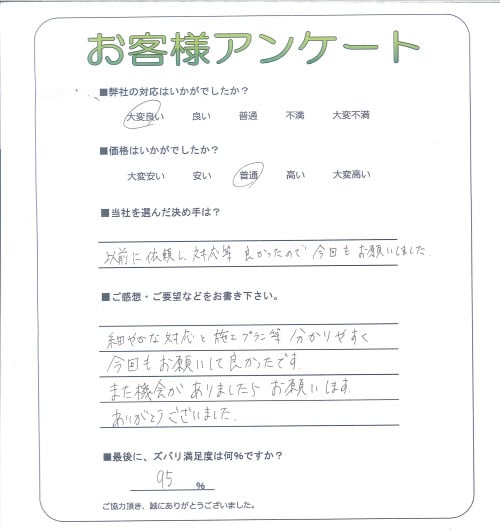 お客様アンケート
■弊社の対応はいかがでしたか?
大変良い 良い 普通 不満 大変不満
■価格はいかがでしたか?
大変安い 安い 普通 高い 大変高い
■当社を選んだ決め手は?
以前に依頼し、対応等 良かったので 今回も お願いしました。
■ご感想・ご要望などをお書き下さい。
細やかな対応と施工プラン等 分かりやすく
今回もお願いして良かったです。
また機会が ありましたら お願いします。
ありがとうございました。
■最後に、ズバリ満足度は何%ですか?
95 %
ご協力頂き、誠にありがとうございました。